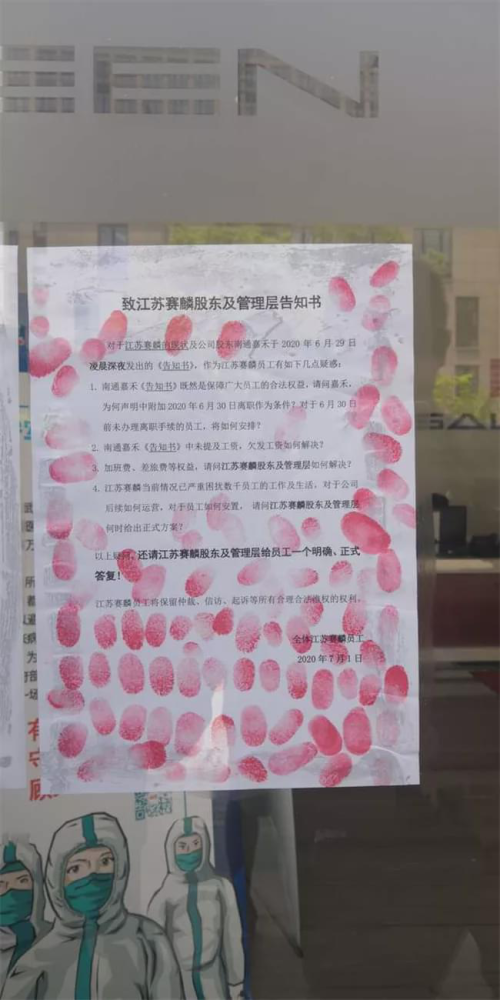 EEN
致江苏赛麟股东及管理层告知书
对于江苏赛麟的现状及公司股东南通嘉禾于 2020 年 6 月 29 日
凌晨深夜发出的《告知书》，作为江苏赛麟员工有如下几点疑惑：
1. 南通嘉禾《告知书》既然是保障广大员工的合法权益，请问嘉禾，
为何声明中附加 2020 年 6 月 30 日离职作为条件？对于 6 月 30 日
前未办理离职手续的员工，将如何安排？
2. 南通嘉禾《告知书》中未提及工资，欠发工资如何解决？
3. 加班费、差旅费等权益，请问江苏赛麟股东及管理层如何解决？
4. 江苏赛麟当前情况已严重困扰数千员工的工作及生活，对于公司
后续如何运营，对于员工如何安置，请问江苏赛麟股东及管理层
何时给出正式方案？
以上疑问，还请江苏赛麟股东及管理层给员工一个明确、正式
答复！
江苏赛麟员工将保留仲裁、信访、起诉等所有合理合法维权的权利。
全体江苏赛麟员工
2020 年 7 月 1 日